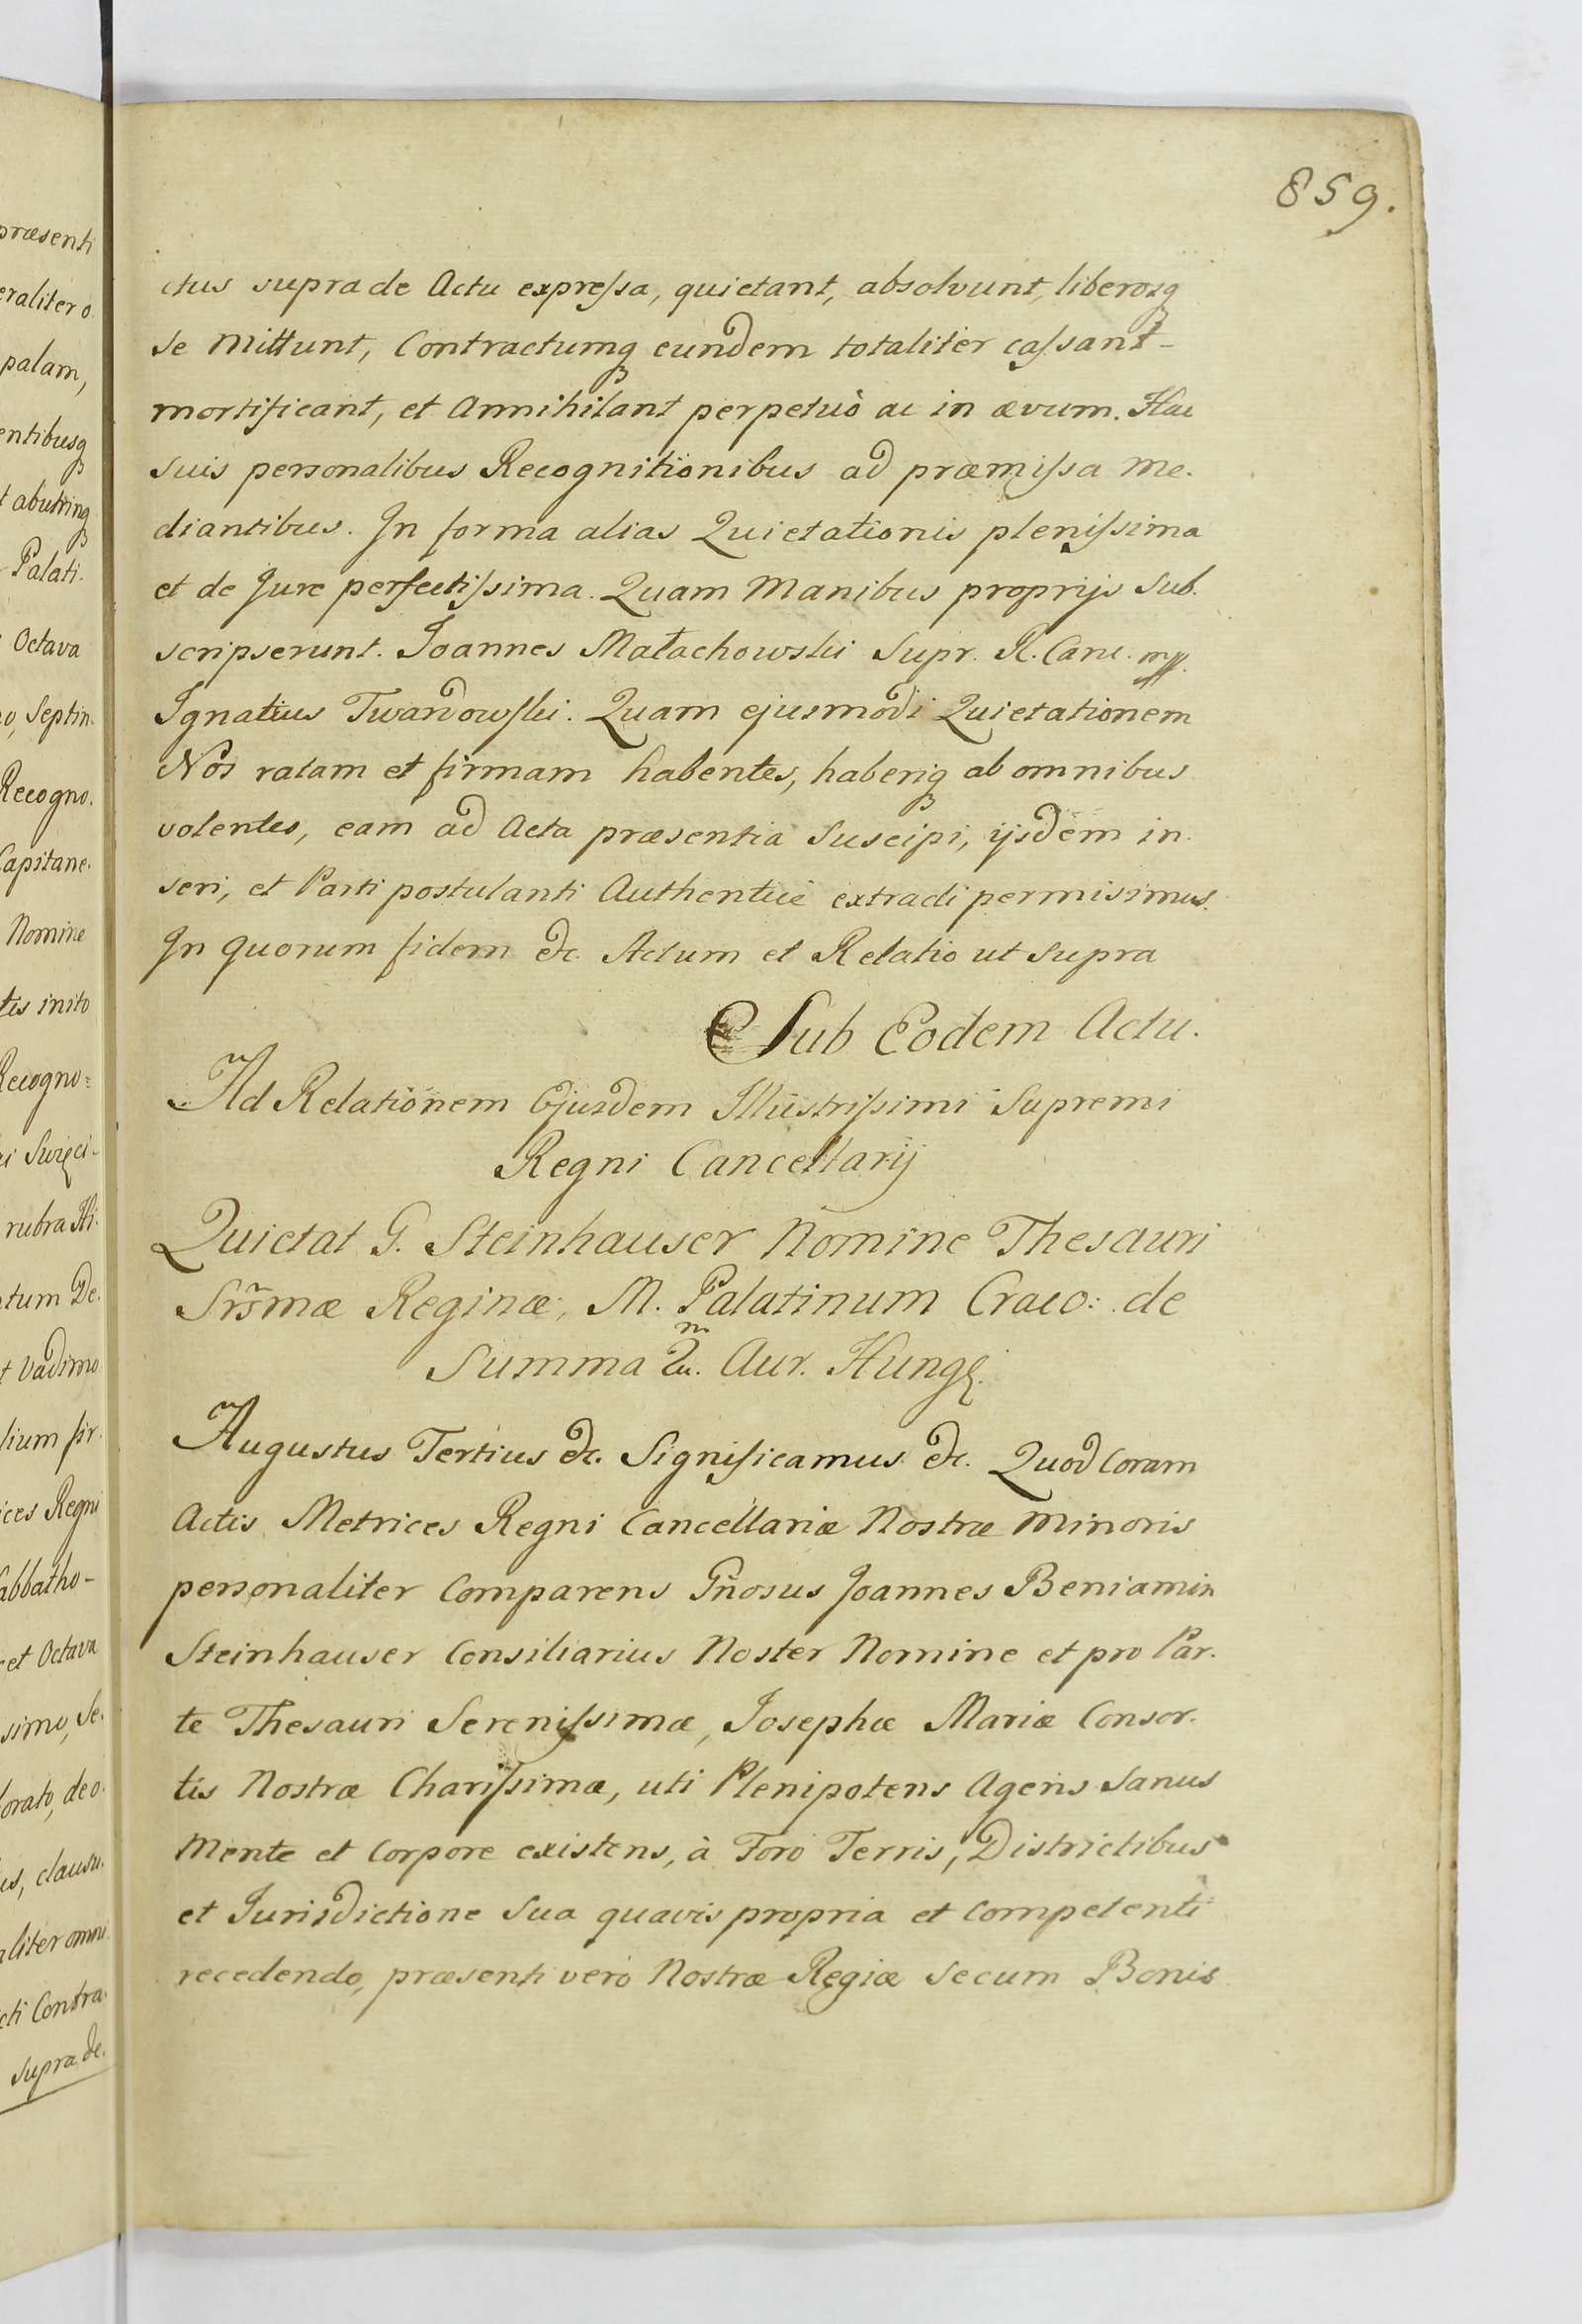 præsenti
eralitero
palam,
entibusq
t abutrinq
Palati.
Octava
o, Septin.
Recogno.
Capitane.
Nomine
tis inito
Recogno=
i Swięci-
rubra Hi.
tum De.
t vadimo
lium fir.
ices Regni
Sabbatho-
et Octava
simo, Se.
lorato, de o.
is, clausu.
aliter omni
cti Contra.
supra de.
859.
ctus supra de Actu expreſsa, quietant, absolvunt, liberosq
se mittunt, Contractumq eundem totaliter caſsant-
mortificant, et Annihilant perpetuò ac in ævum. Hac
suis personalibus Recognitionibus ad præmiſsa me.
diantibus. In forma alias Quietationis pleniſsima
et de Jure perfectiſsima. Quam Manibus proprijs Sub.
scripserunt. Joannes Małachowski Supr. R. Canc. mpp.
Ignatius Twardowſki. Quam ejusmodi Quietationem
Nos ratam et firmam habentes, haberiq ab omnibus
volentes, eam ad Acta præsentia Suscipi, ijsdem in.
seri, et Parti postulanti Authenticè extradi permisimus.
In quorum fidem &c. Actum et Relatio ut supra
Sub Eodem Actu.
Ad Relationem Ejusdem Illustriſsimi Supremi
Regni Cancellarij
Quietat G. Steinhauser Nomine Thesauri
Srs̃mæ Reginæ, M. Palatinum Craco: de
Summa 2m. Aur. Hung.
Augustus Tertius &c. Significamus &c. Quod Coram
Actis Metrices Regni Cancellariæ Nostræ Minoris
personaliter Comparens Gñosus Joannes Beniamin
Steinhauser Consiliarius Noster Nomine et pro Par.
te Thesauri Sereniſsimæ, Josephæ Mariæ Consor.
tis Nostræ Chariſsimæ, uti Plenipotens Agens Sanus
Mente et Corpore existens, à Foro Terris, Districtibus
et Jurisdictione Sua quavis propria et Competenti
recedendo, præsenti verò Nostræ Regiæ secum Bonis